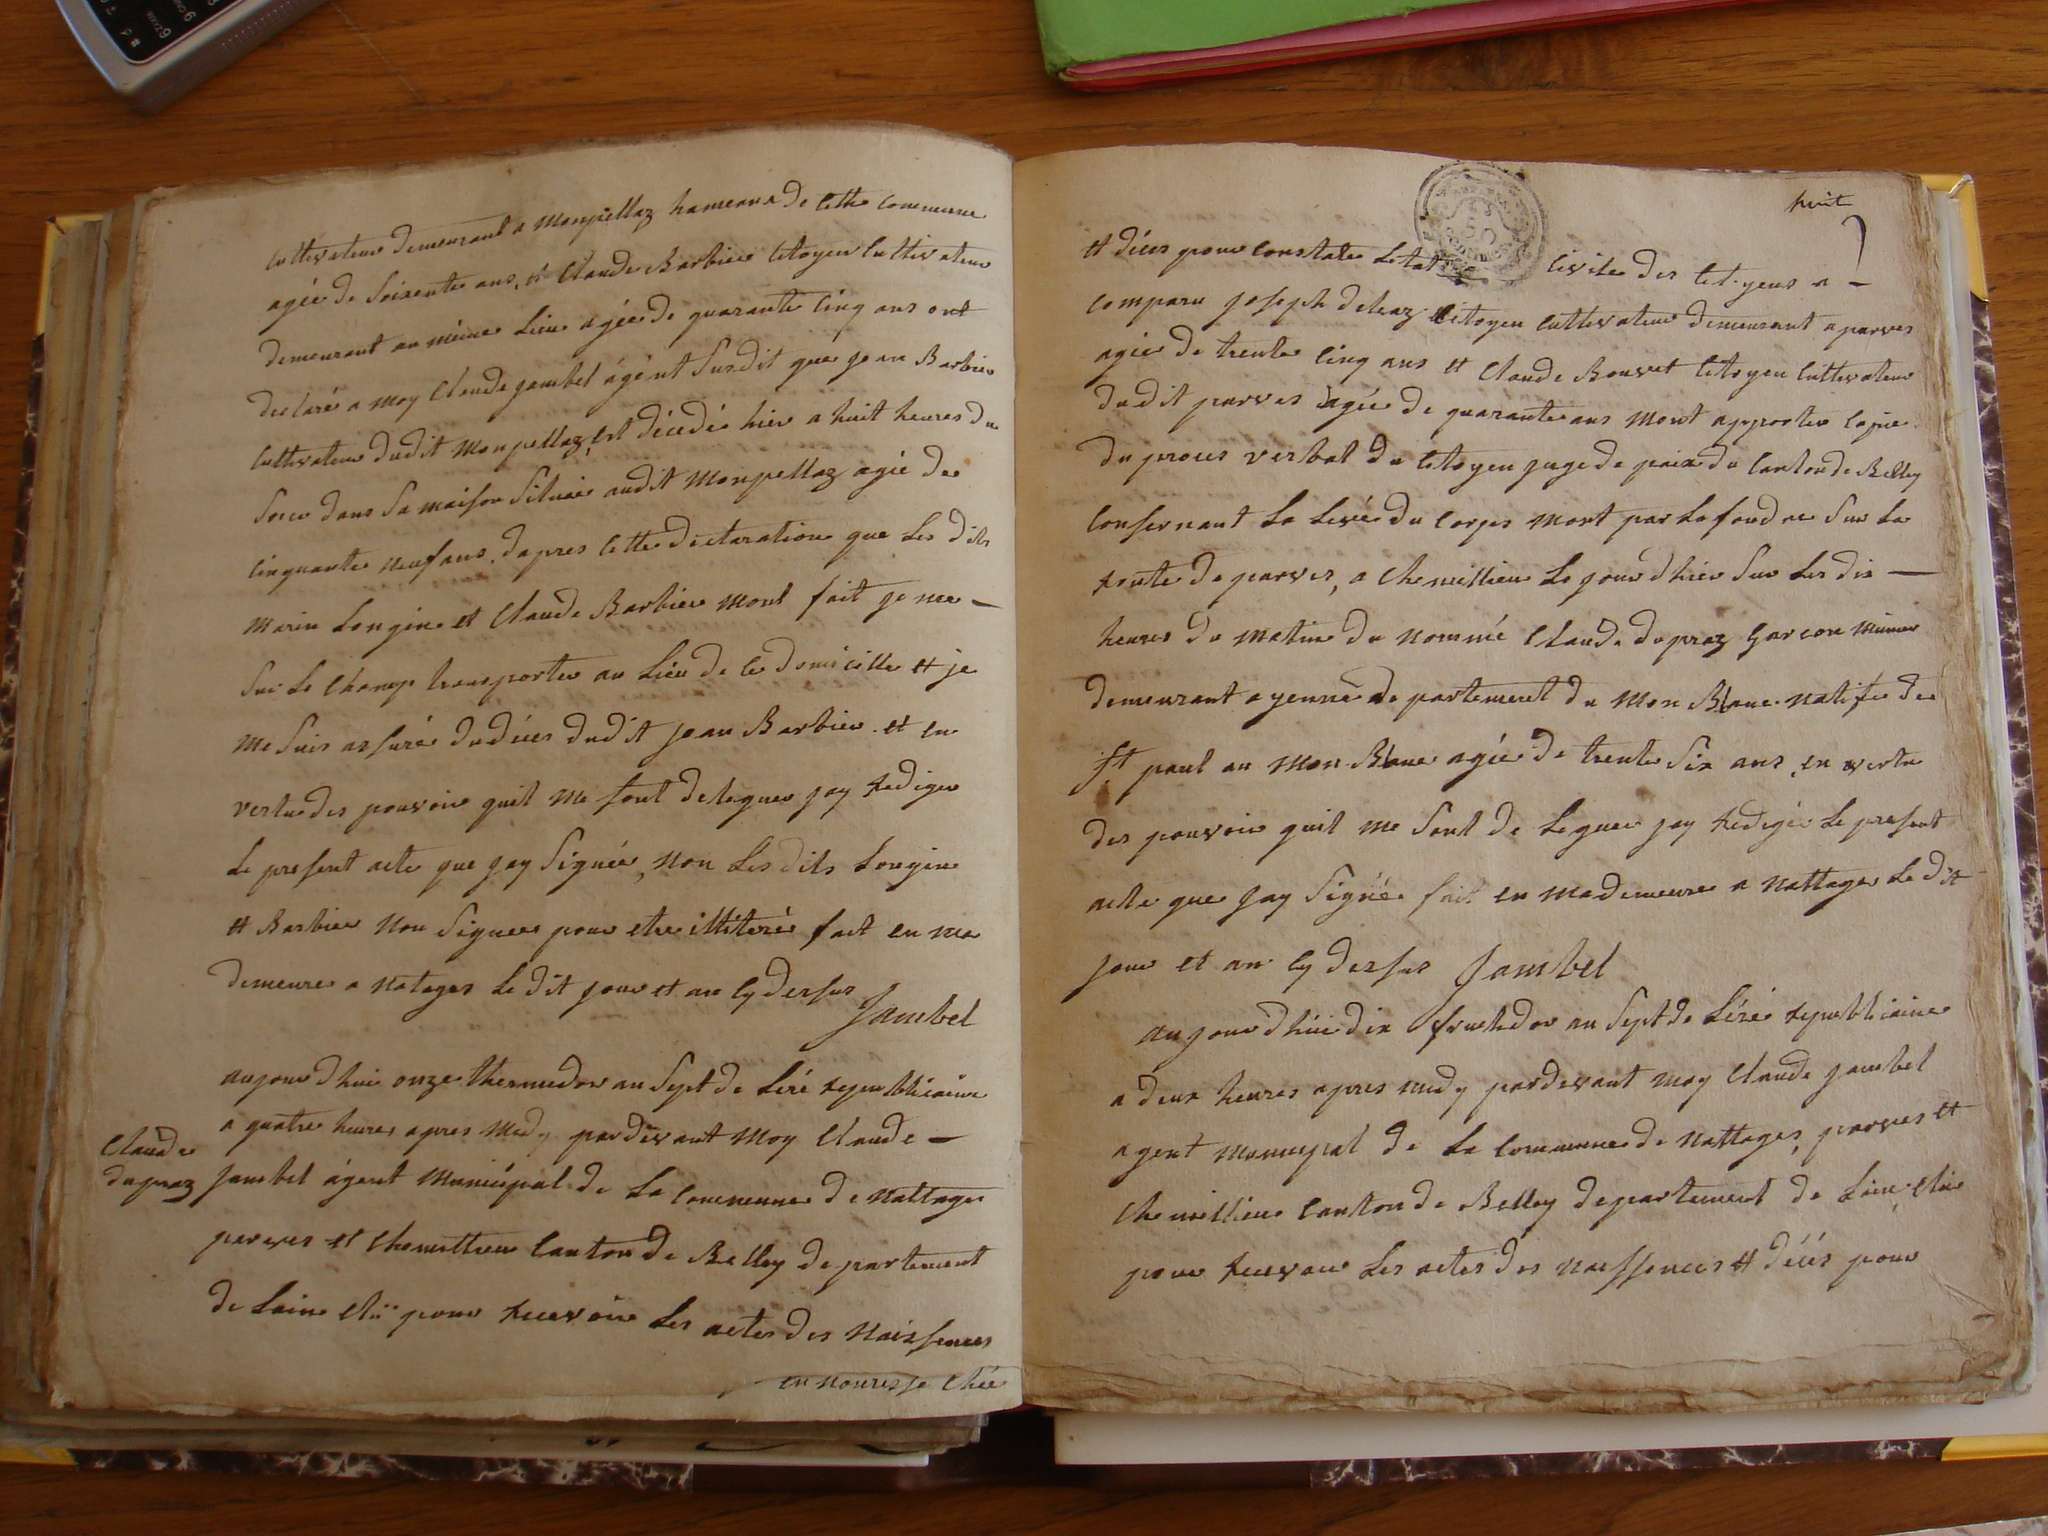 cultivateur demeurant a Monpellaz hameau de cette commune
agée de soixente ans, et Claude Barbier citoyen cultivateur
demeurant au même lieu agée de quarante cinq ans ont
declaré a moy Claude jambel ágént susdit que jean Barbier
cultivateur dudit Monpellaz, est décédé hier a huit heures du
soir dans sa maison situéé audit Monpellaz agée de
cinquante neuf ans, dapres cette declaration que les dits
Marin Longin et Claude Barbier mont fait je me
sur le champ transporter au lieu de ce domicille et je
me suis assuré dudéces dudit jean Barbier et en
vertu des pouvoir quil me sont deleguer jay rediger
le present acte que jay signée, non les dits Longin
et Barbier non signer pour etre illitéré fait en ma
demeure a Natages le dit jour et an cy dessus
Jambel
aujourdhui onze thermedor an sept de léré republicaine
a quatre heures apres Medy pardevant moy Claude
Claude
dupraz
jambel ágent Municipal de la commune de Nattages
parves et chemillieu canton de Belley departement
de lain élu pour recevoir les actes des naissences
huit
et déces pour constater letat civile des citoyens a
comparu joseph delraz citoyen cultivateur demeurant a parves
agée de trente cinq ans et Claude Bouvet citoyen cultivateur
dudit parves agée de quarante ans mont apporter copie
du proces verbal du citoyen juge de paix du canton de Belley
consernant la levé du corps mort par la foudre sur la
route de parves, a Chemillieu le jour dhier sur les dix
heures du matin du nommé Claude dupraz garcon munier
demeurant a yenne departement du Mon Blanc natife de
st paul au Mon Blanc agée de trente six ans, en vertu
des pouvoir quil me sont de leguer jay redigée le present
acte que jay signée fait en ma demeure a Nattages le dit
jour et an cy dessus Jambel
aujourdhui dix fructedor an sept de lére republicaine
a deux heures apres medy pardevant moy Claude jambel
agent municipal de la commune de Nattages, parves et
Chemillieu canton de Belley departement de lain, élu
pour recevoir les actes des naissences et déces pour